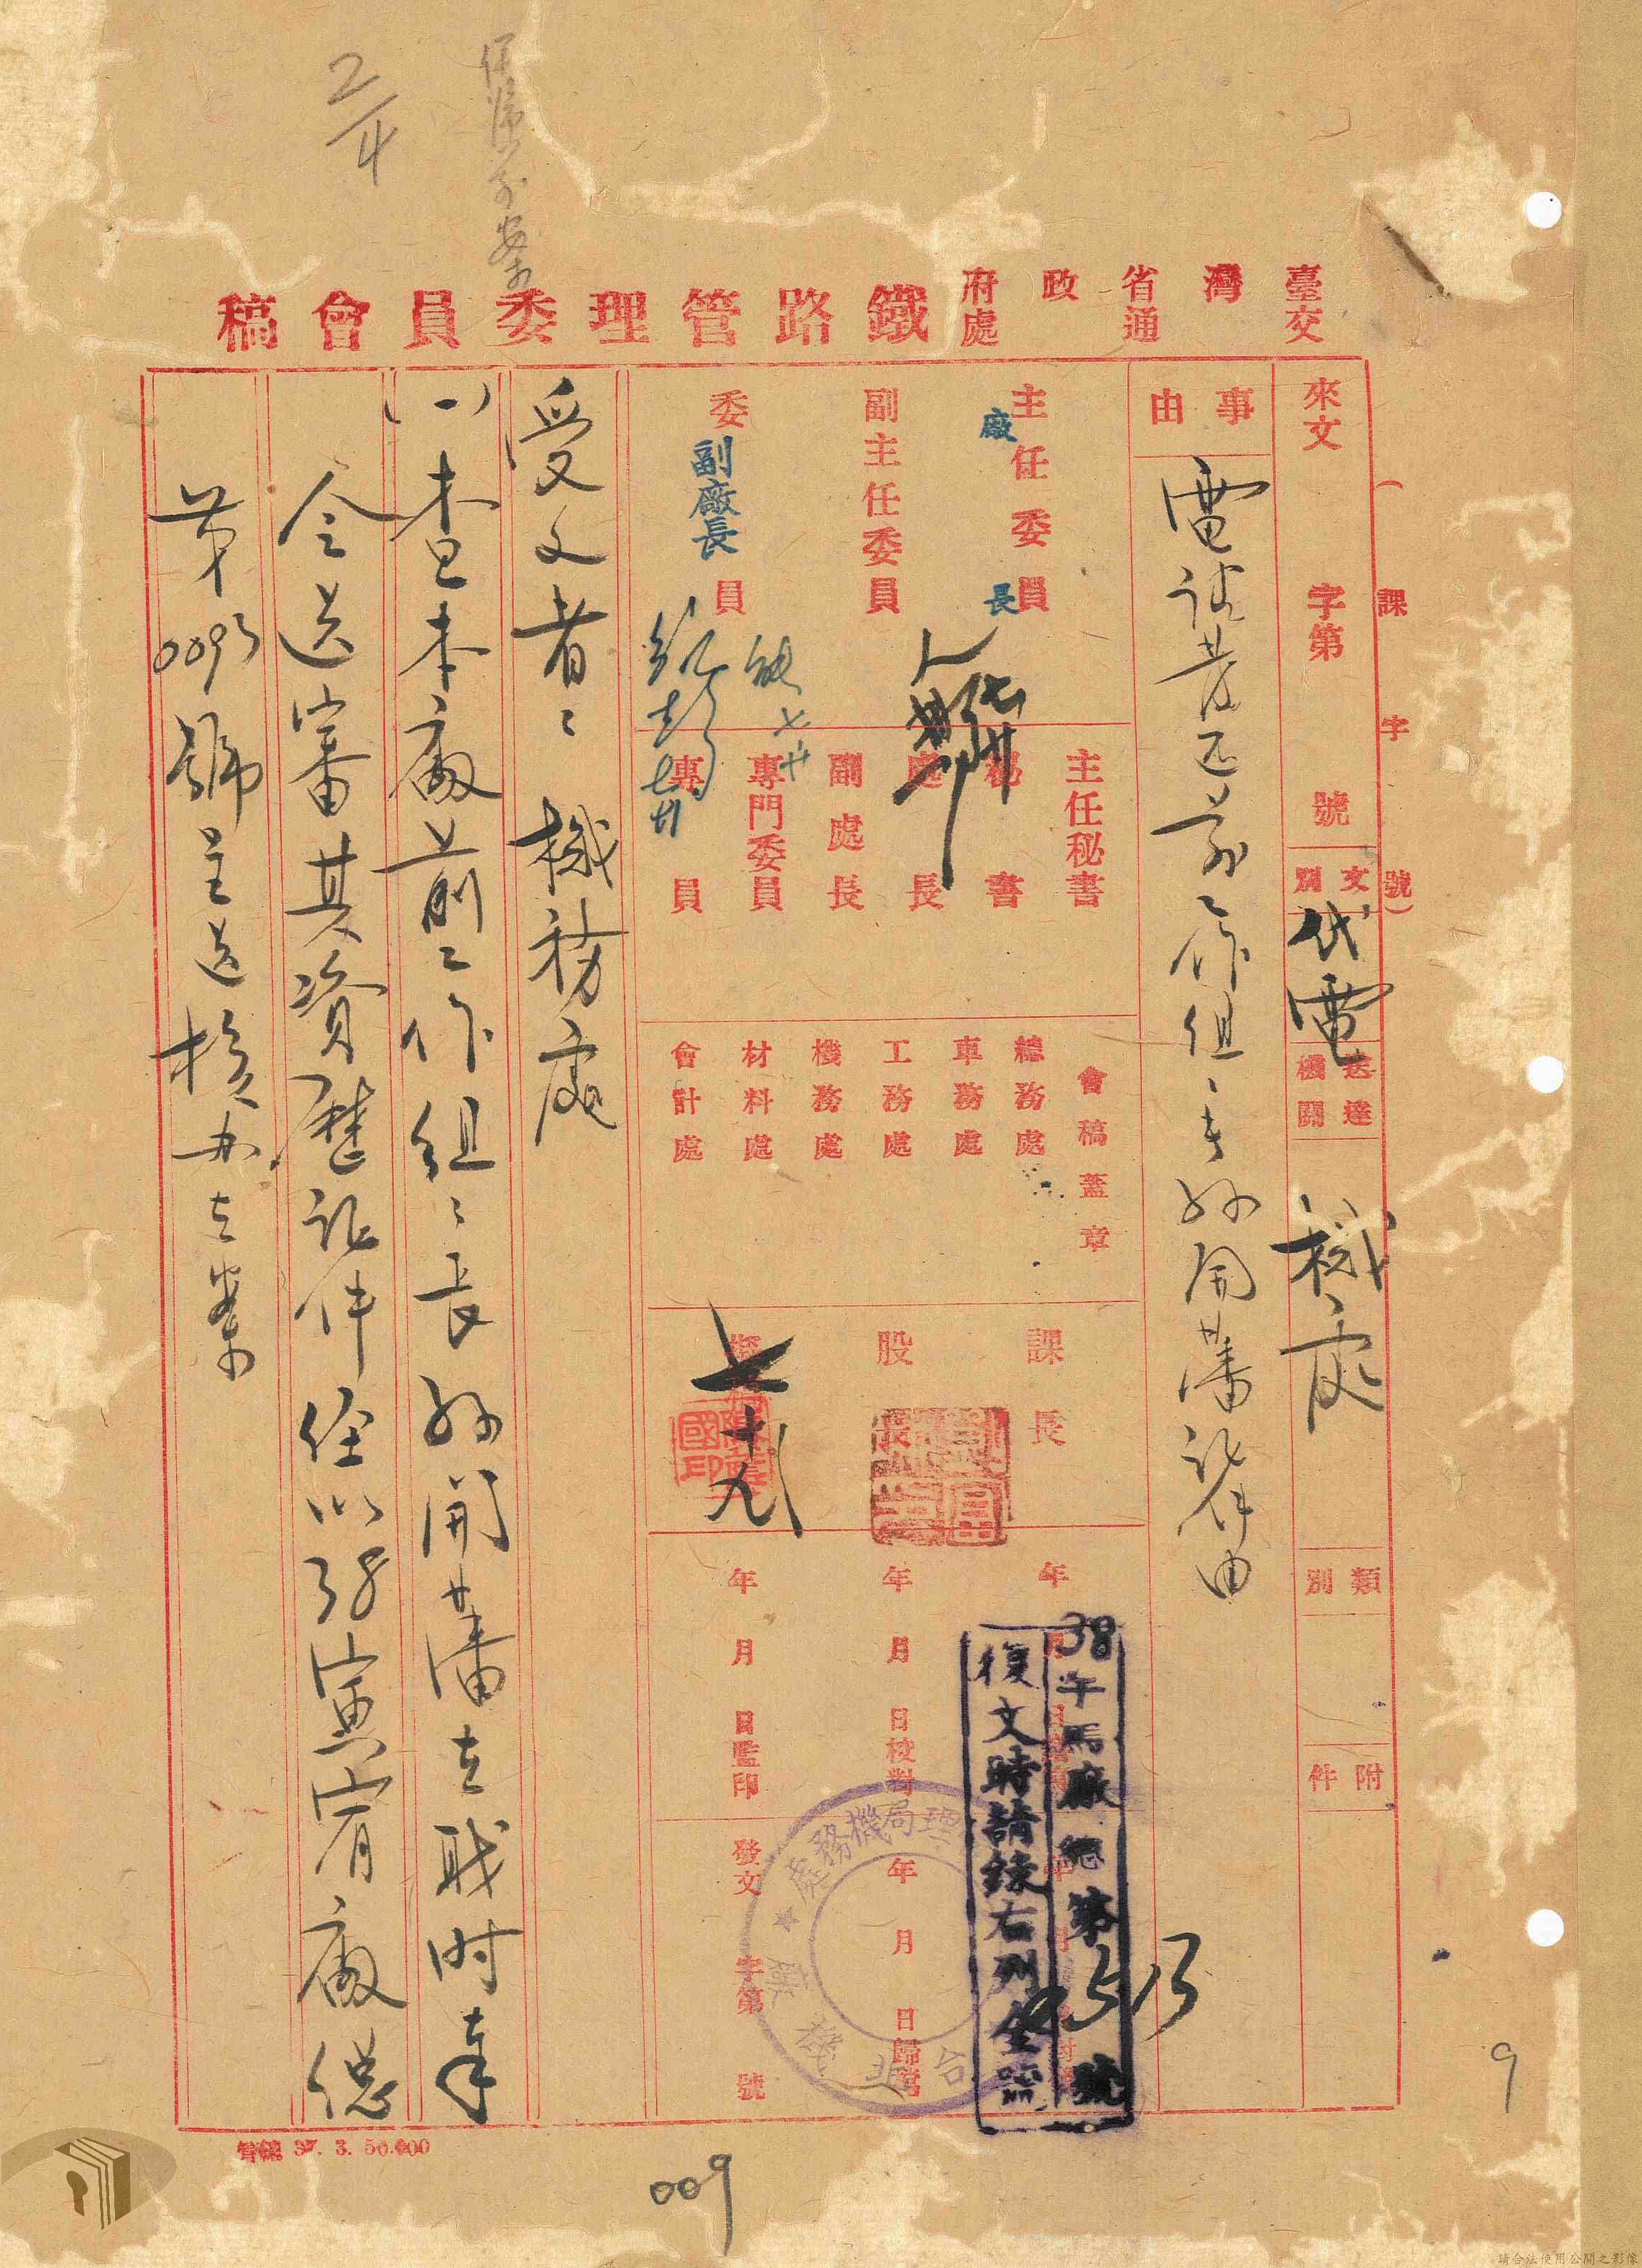 2/4
臺灣省政府交通處
鐵路管理委員會稿
(課字號)
來文 字第 號
文別 代電
送達機關 機務處
類別
附件
事由
電請發還前工作組組長孫開藩證件由
主任委員
廠長
副主任委員
委員
副廠長
主任秘書
秘書
處長
副處長
專門委員
專員
會稿蓋章
總務處
車務處
工務處
機務處
材料處
會計處
課長
股長
七 十九
年 月 日
年 月 日校對
年 月 日監印
年 月 日歸檔
發文 字第 號
38午馬廠總第 號
復文時請錄右列全號
受文者：機務處
(一)查本廠前工作組組長孫開藩在職時奉
令送審其資歷證件經以 寅宥廠總
第0093號呈送核办在案
管總 37. 3. 50.000
009
9
請合法使用公開之影像